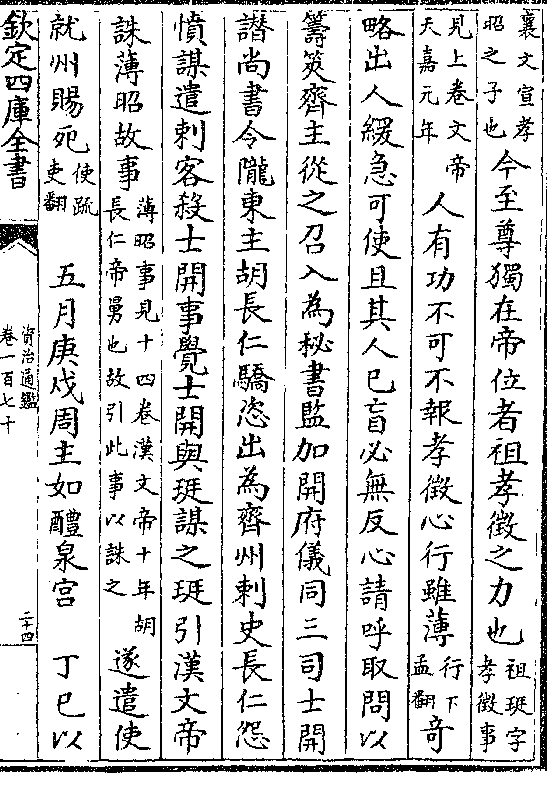 襄文宣孝
昭之子也
今至尊獨在帝位者祖孝徵之力也
祖珽字
孝徵事
見上卷文帝
天嘉元年
人有功不可不報孝徵心行雖薄
行下
孟翻
奇
略出人緩急可使且其人已盲必無反心請呼取問以
籌筴齊主從之召入為秘書監加開府儀同三司士開
譖尚書令隴東主胡長仁驕恣出為齊州刺史長仁怨
憤謀遣刺客殺士開事覺士開與珽謀之珽引漢文帝
誅薄昭故事
薄昭事見十四卷漢文帝十年胡
長仁帝舅也故引此事以誅之
遂遣使
就州賜死
使疏
吏翻
五月庚戌周主如醴泉宫 丁巳以
欽定四庫全書
資治通鑑
卷一百七十
二十四